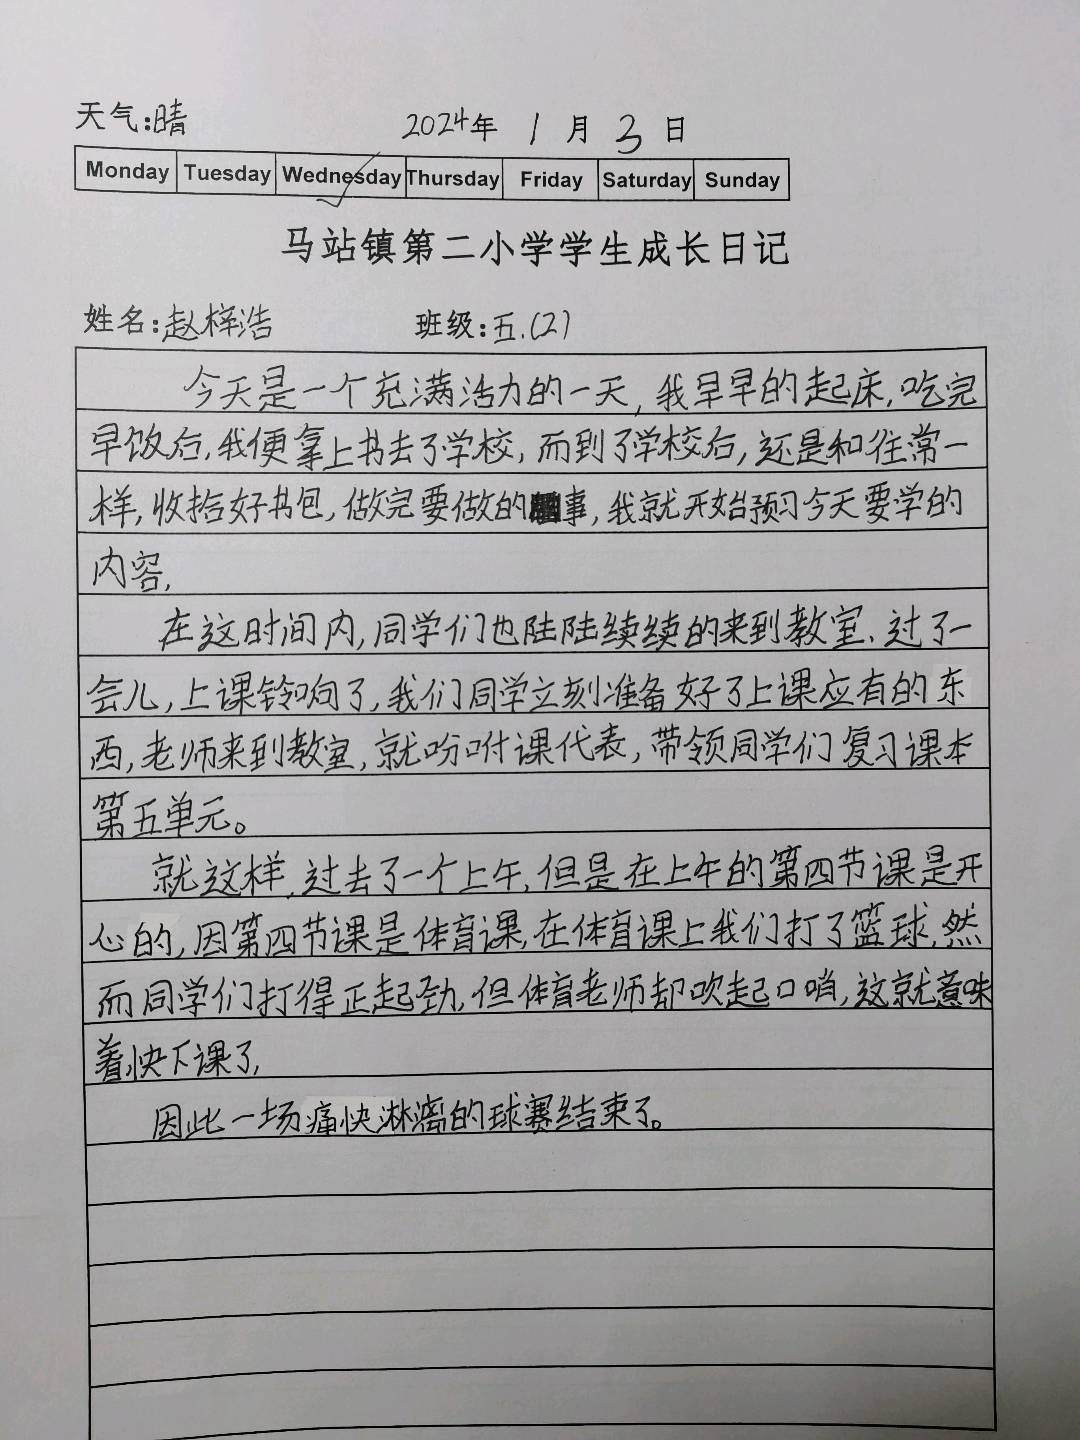 天气:晴 2024年 1月 3日
Monday Tuesday Wednesday Thursday Friday Saturday Sunday
马站镇第二小学学生成长日记
姓名:赵梓浩 班级:五.(2)
今天是一个充满活力的一天,我早早的起床,吃完
早饭后,我便拿上书去了学校,而到了学校后,还是和往常一
样,收拾好书包,做完要做的事,我就开始预习今天要学的
内容,
在这时间内,同学们也陆陆续续的来到教室、过了一
会儿,上课铃响了,我们同学立刻准备好了上课应有的东
西,老师来到教室,就吩咐课代表,带领同学们复习课本
第五单元。
就这样,过去了一个上午,但是在上午的第四节课是开
心的,因第四节课是体育课,在体育课上我们打了篮球,然
而同学们打得正起劲,但体育老师却吹起口哨,这就意味
着快下课了,
因此一场痛快淋漓的球赛结束了。